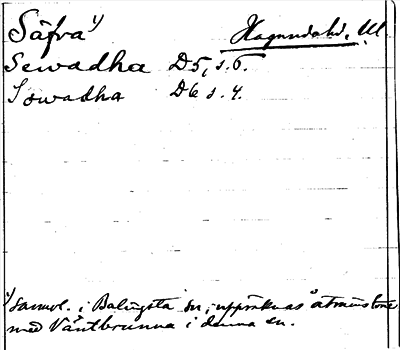 Säfva 1) Hagunda hd, Ul.
Sewadha D5, s. 6.
Sowadha D6 s. 4.
1) Sannol. i Balingsta sn, uppräknas åtminstone
med Väntbrunna i denna sn.